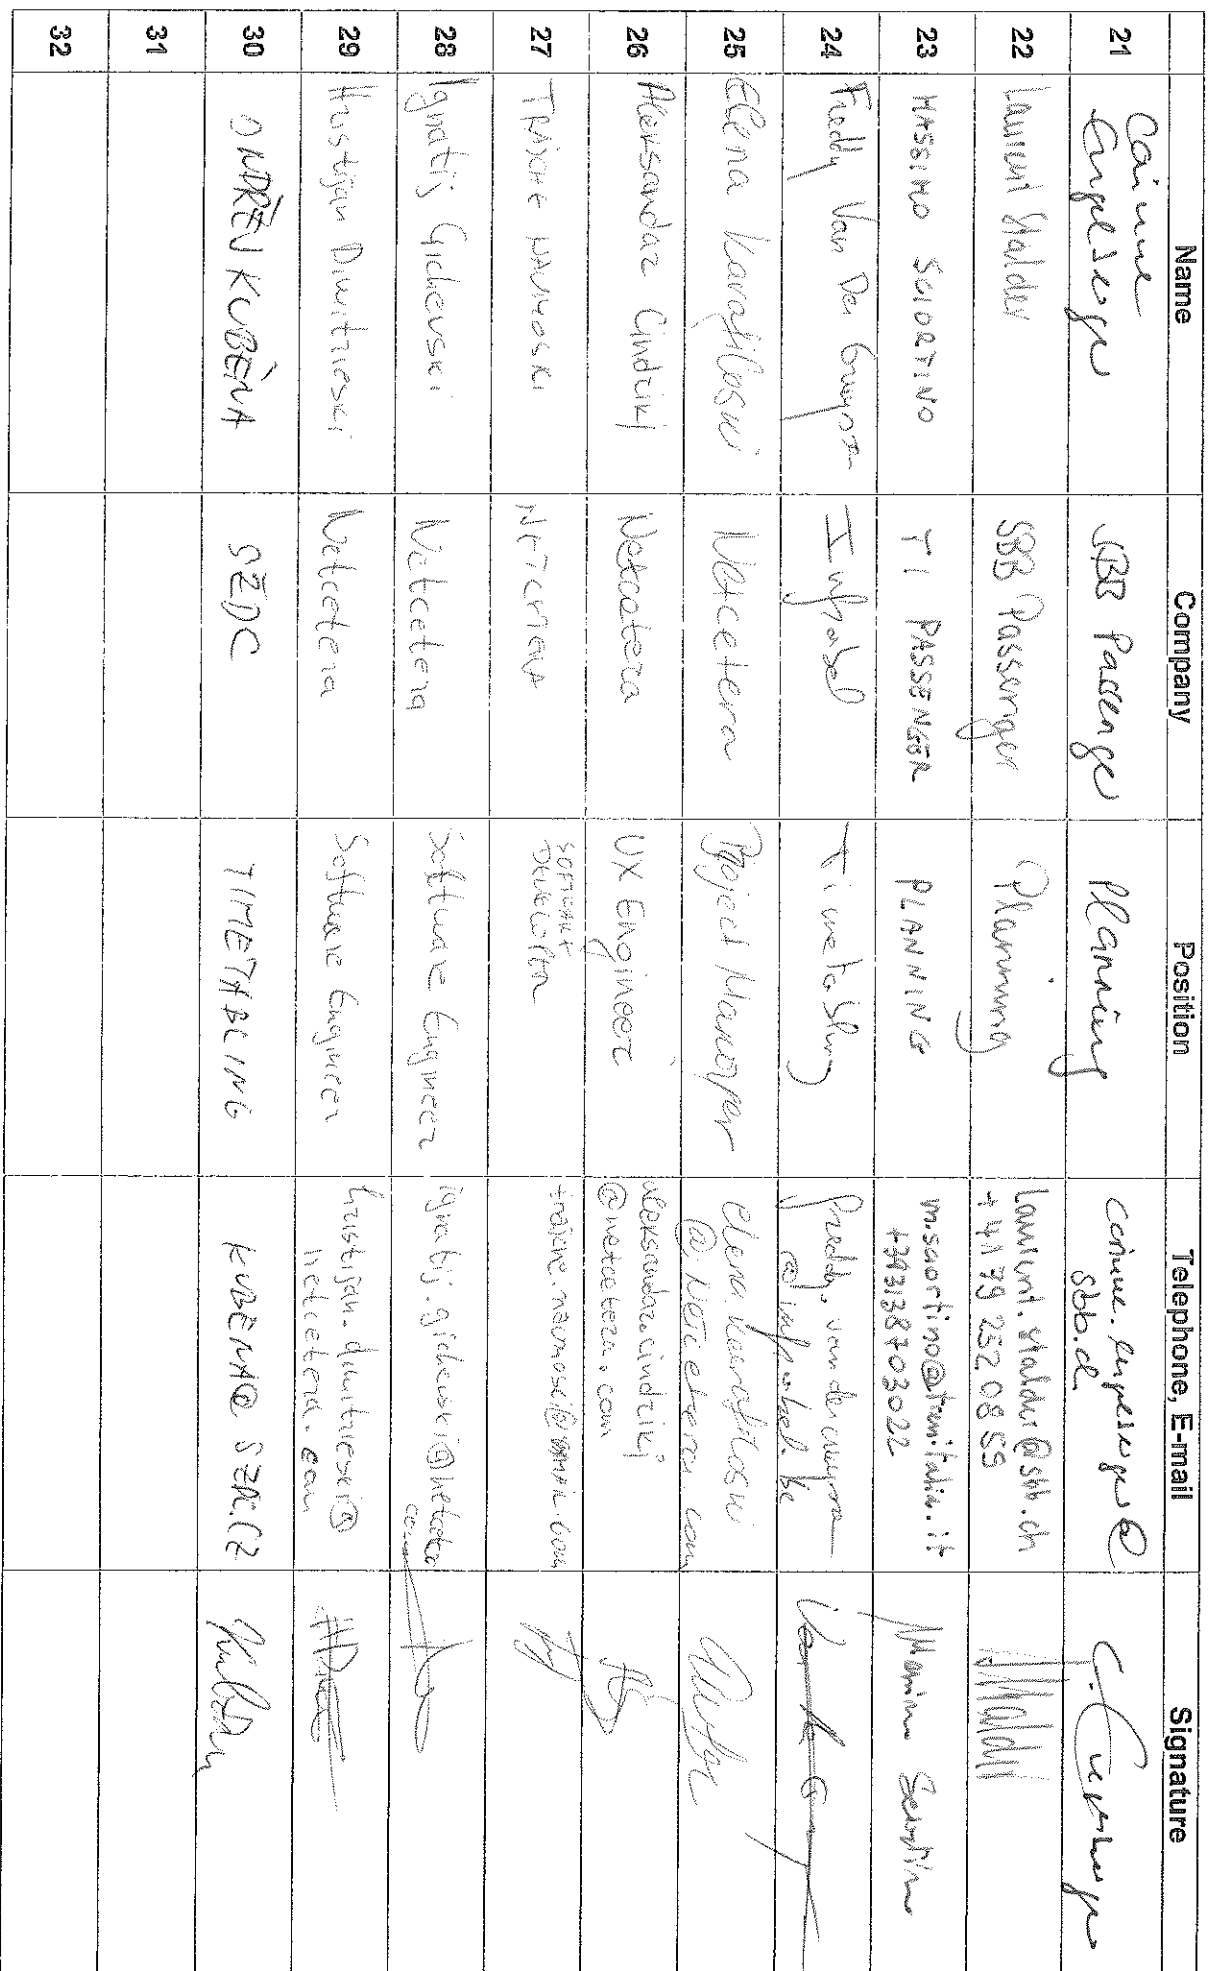 Name Company Position Telephone, E-mail Signature
21 SBB Passenger Planning
sbb.ch
22 Laurent Stalder SBB Passenger Planning laurent.stalder@sbb.ch
+41 79 252 08 55
23 MASSIMO SCIORTINO TI PASSENGER PLANNING m.sciortino@trenitalia.it
+393138703022
24 Freddy Van Der Infrabel Timetabling
@infrabel.be
25 Elena Karafiloski Netcetera Project Manager elena.karafiloski
@netcetera.com
26 Aleksandar Cindrikj Netcetera UX Engineer aleksandar.cindrikj
@netcetera.com
27 TRAJCHE NETCETERA SOFTWARE
DEVELOPER
28 Ignatij Gichevski Netcetera Software Engineer ignatij.gichevski@netcetera
com
29 Hristijan Dimitrieski Netcetera Software Engineer hristijan.dimitrieski@
netcetera.com
30 ONDŘEJ KUBĚNA SŽDC TIMETABLING KUBENA@SZDC.CZ
31
32